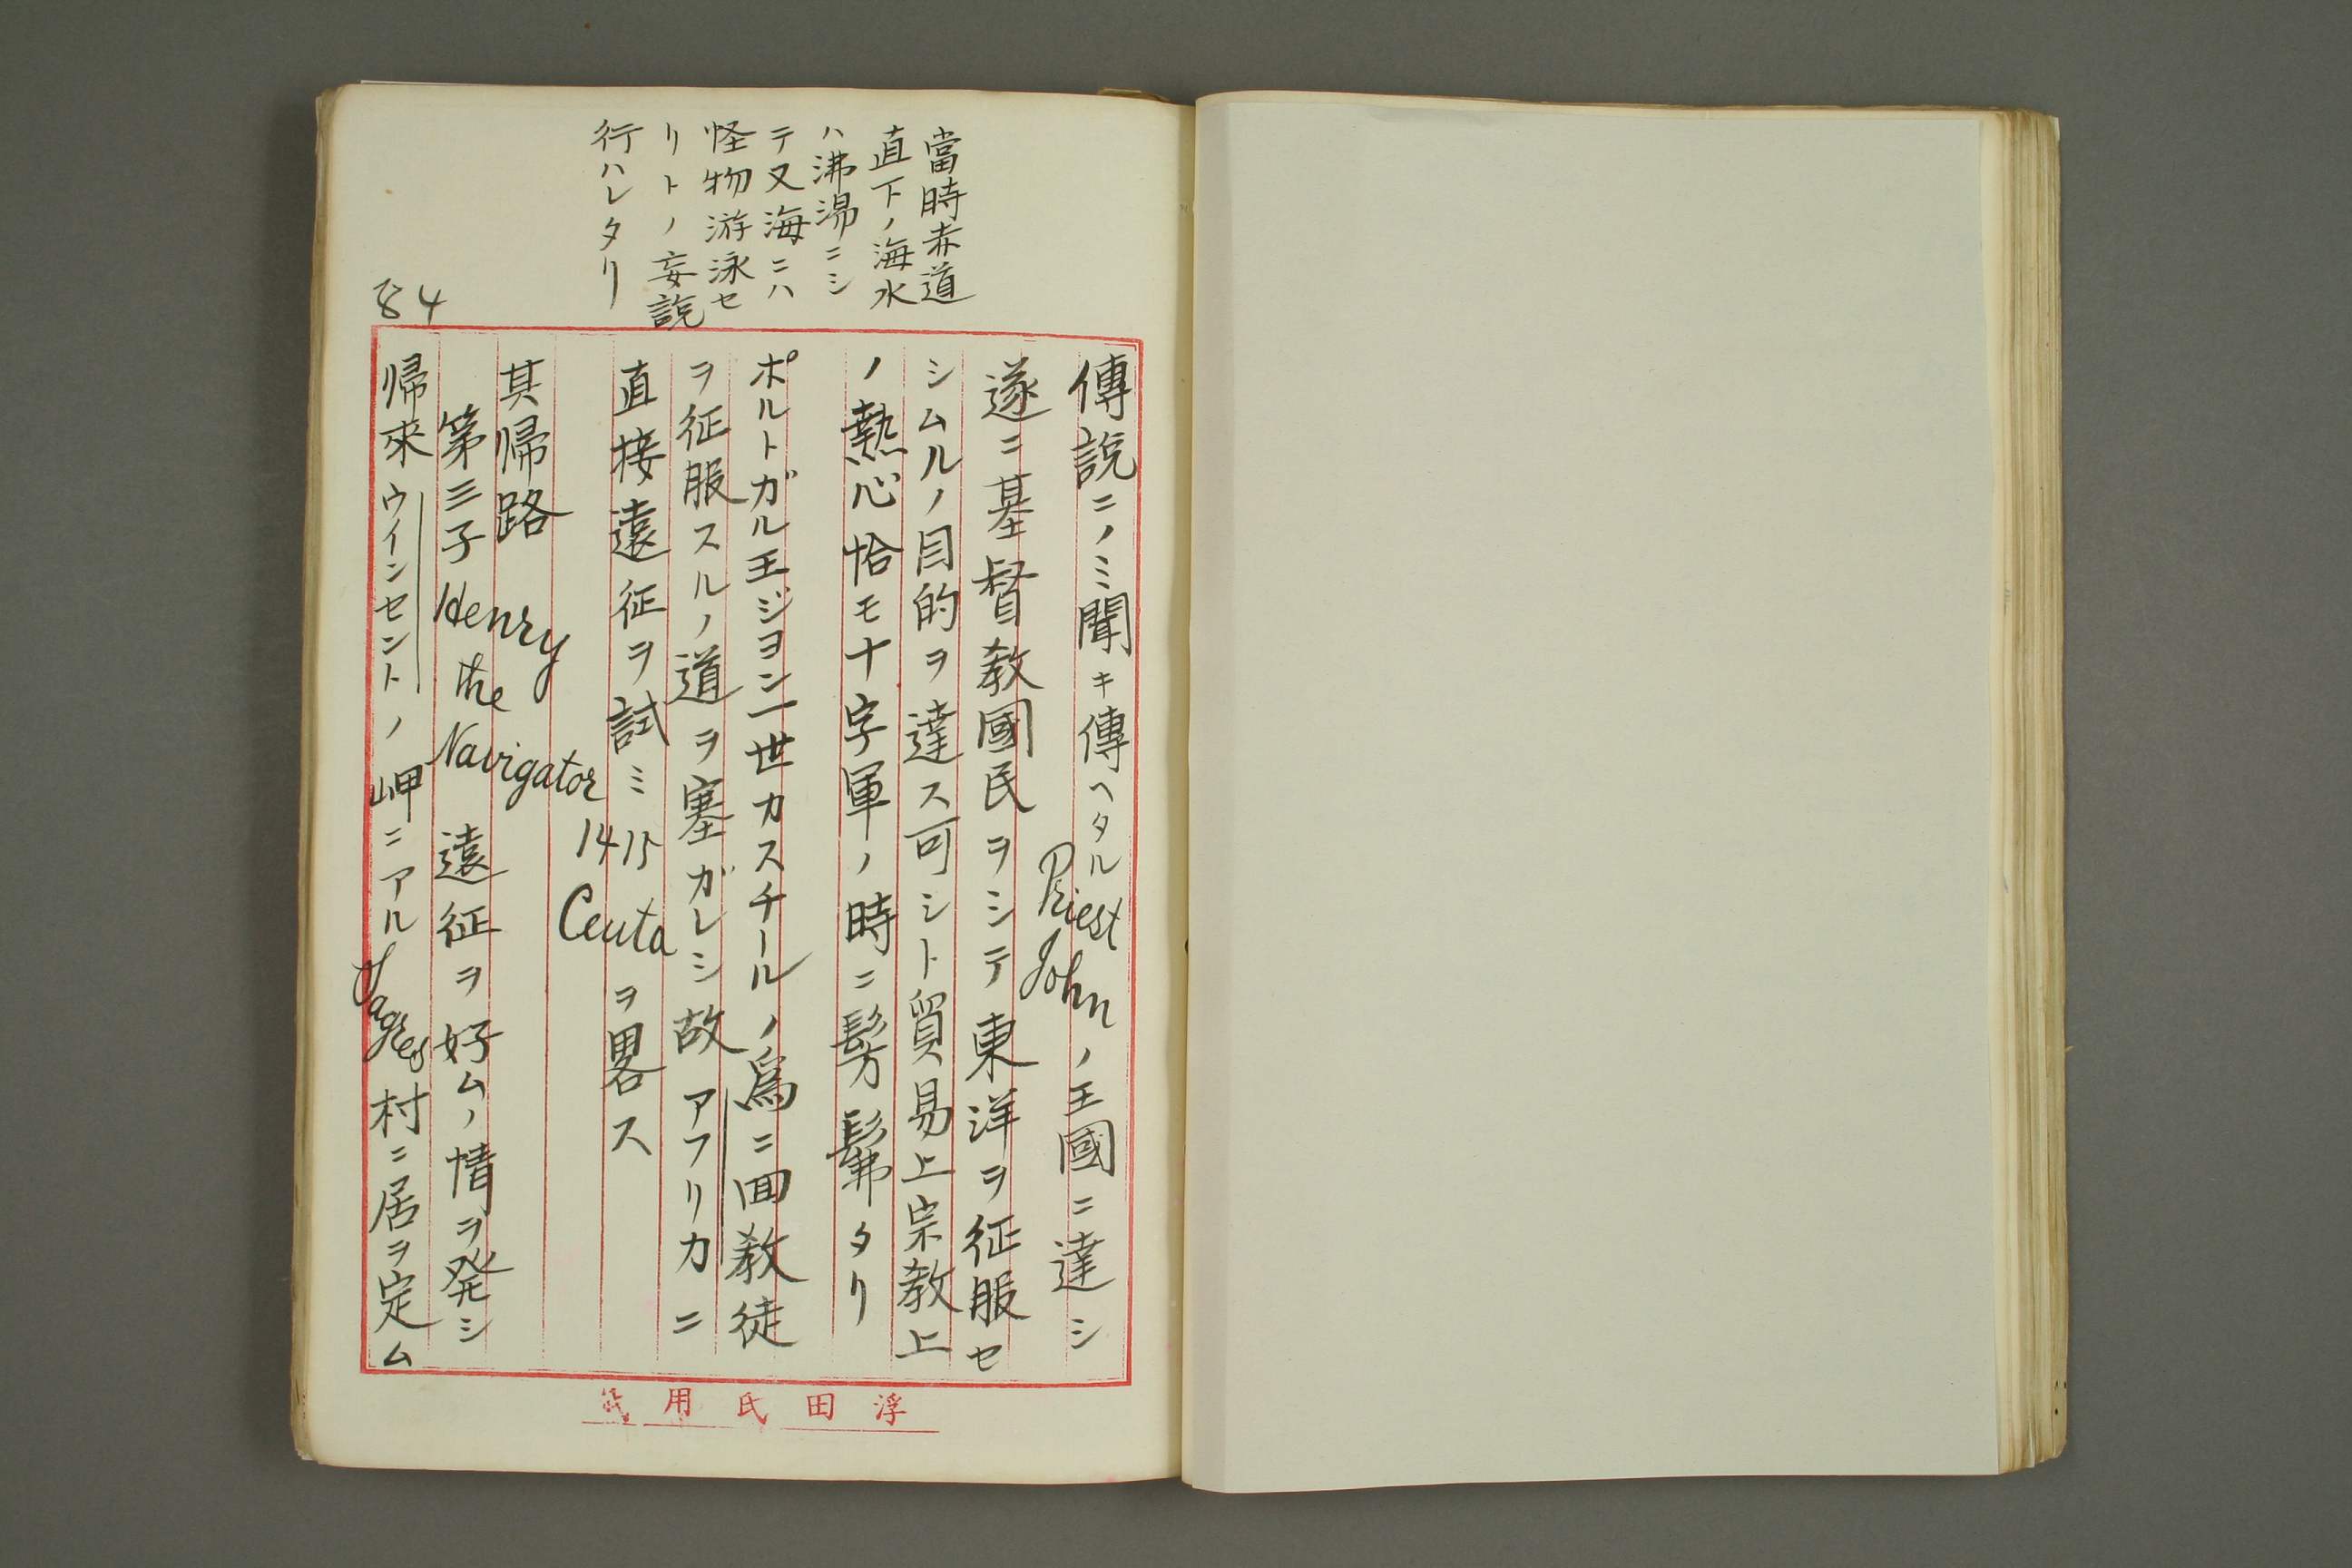 當時赤道
直下ノ海水
ハ沸湯ニシ
テ又海ニハ
怪物游泳セ
リトノ妄説
行ハレタリ
84
傳説ニノミ聞キ傳ヘタル Priest John ノ王國ニ達シ
遂ニ基督教國民ヲシテ東洋ヲ征服セ
シムルノ目的ヲ達ス可シト貿易上宗教上
ノ熱心恰モ十字軍ノ時ニ髣髴タリ
ポルトガル王ジヨン一世カスチールノ爲ニ回教徒
ヲ征服スルノ道ヲ塞ガレシ故アフリカニ
直接遠征ヲ試ミ 1415 Ceuta ヲ畧ス
其帰路
第三子 Henry the Navigator 遠征ヲ好ムノ情ヲ発シ
帰來ウインセントノ岬ニアル Sagres 村ニ居ヲ定ム
浮田氏用